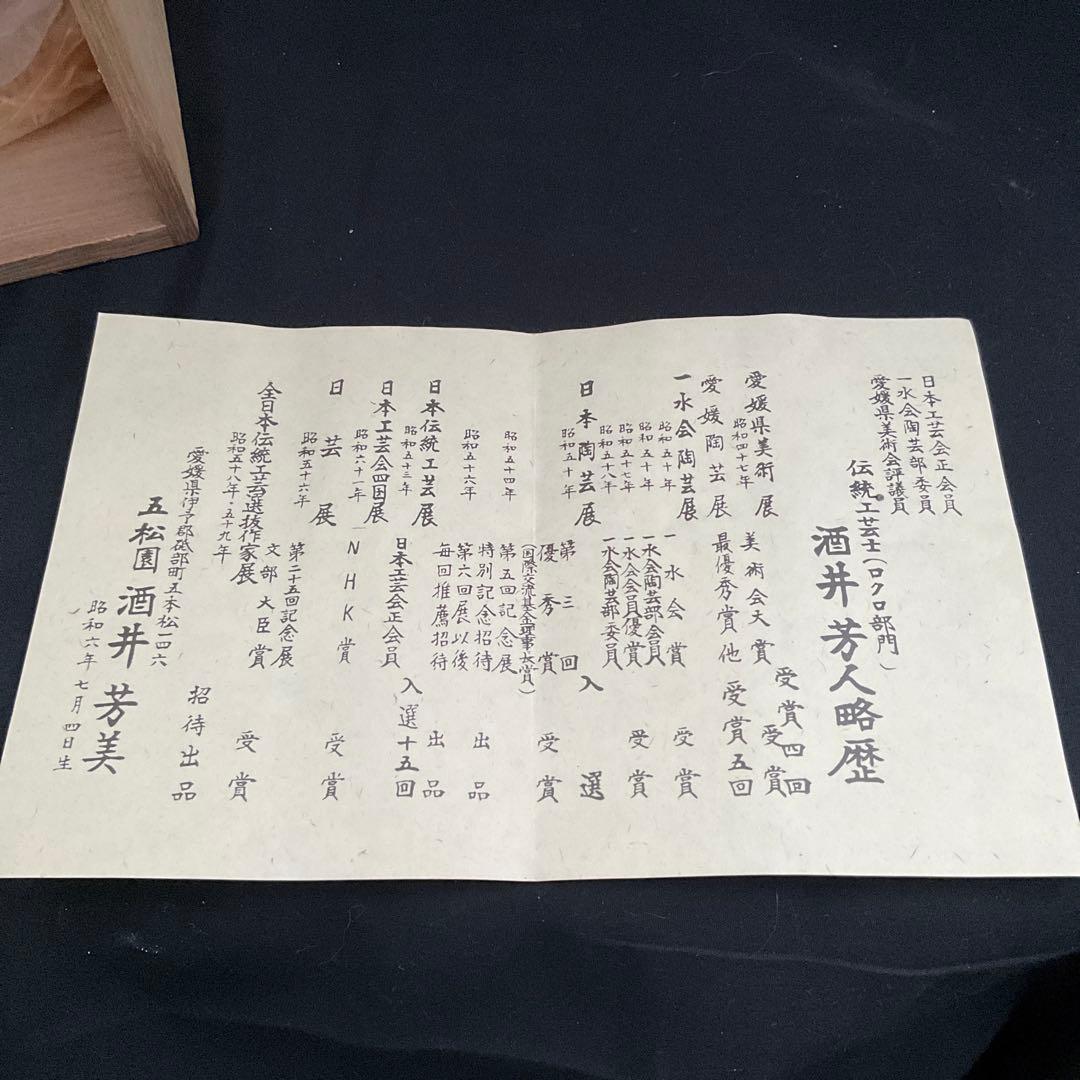 日本工芸会正会員
一水会陶芸部委員
愛媛県美術会評議員
伝統工芸士（ロクロ部門）
酒井芳人略歴
愛媛県美術展 受賞四回
昭和四十七年 美術会大賞 受賞
愛媛陶芸展 最優秀賞他 受賞五回
一水会陶芸展
昭和五十年 一水会賞 受賞
昭和五十年 一水会陶芸部会員
昭和五十七年 一水会会員優賞 受賞
昭和五十八年 一水会陶芸部委員
日本陶芸展 入選
昭和五十年 第三回
優秀賞 受賞
（国際交流基金理事長賞）
昭和五十四年 第五回記念展
特別記念招待 出品
昭和五十六年 第六回展以後
毎回推薦招待 出品
日本伝統工芸展 入選十五回
昭和五十三年 日本工芸会正会員
日本工芸会四国展
昭和六十一年 NHK賞 受賞
日芸展
昭和五十六年 第二十五回記念展
文部大臣賞 受賞
全日本伝統工芸選抜作家展
昭和五十八年・五十九年 招待出品
愛媛県伊予郡砥部町五本松一四六
五松園 酒井芳美
昭和六年七月四日生